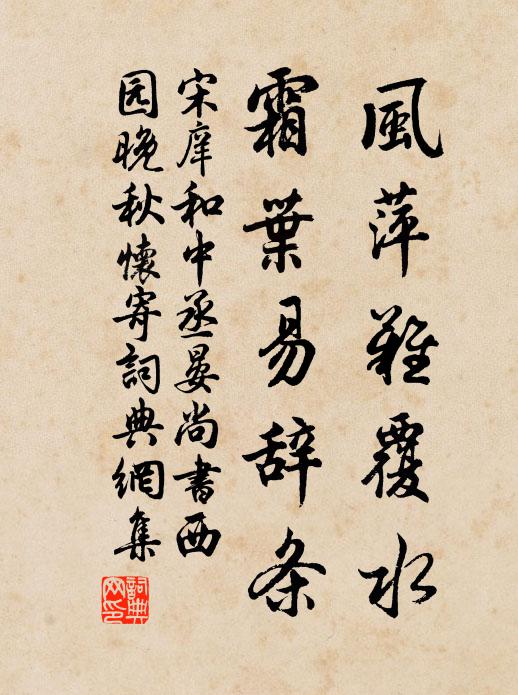 風萍難覆水
霜葉易辞条
宋庠和中丞晏尚書西
园晚秋懷寄詞典網集
詞典
网印